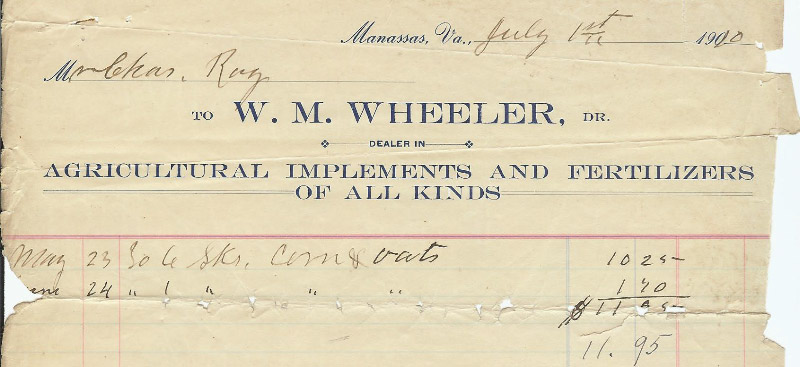 Manassas, Va., July 1st 1900
Mr Chas. Ray
TO W. M. WHEELER, DR.
DEALER IN
AGRICULTURAL IMPLEMENTS AND FERTILIZERS
OF ALL KINDS
May 23 To 6 Sks. Corn & oats 10 25
June 24 " 1 " " " 1 70
$ 11 95
11. 95